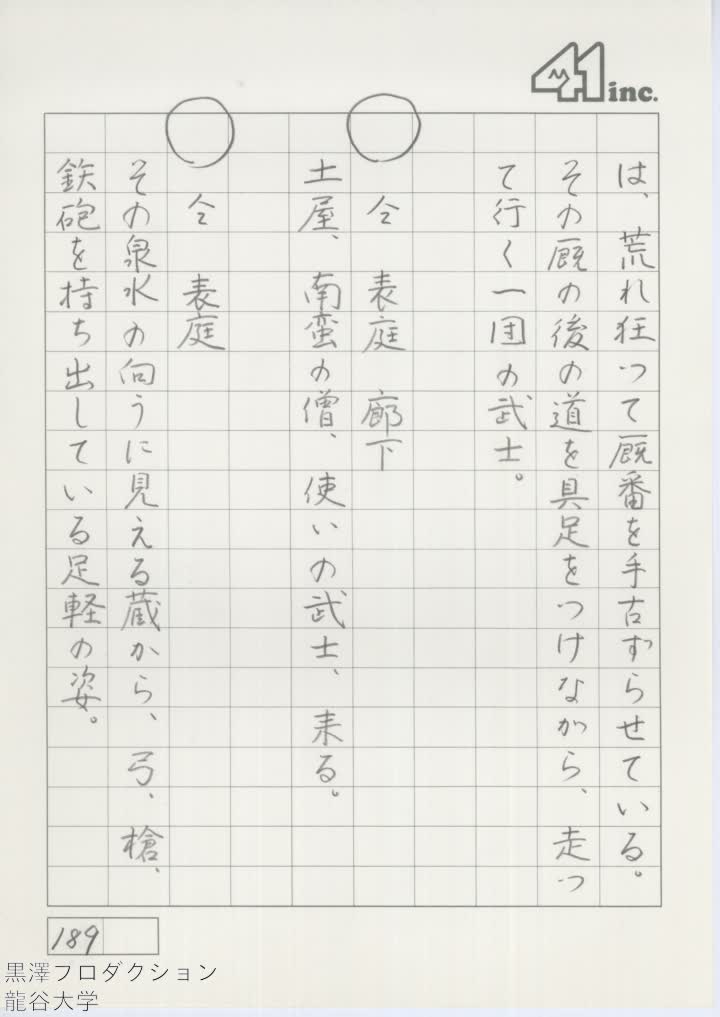 41 inc.
は、荒れ狂って厩番を手古ずらせている。
その厩の後の道を具足をつけながら、走っ
て行く一団の武士。
○　仝　表庭　廊下
土屋、南蛮の僧、使いの武士、来る。
○　仝　表庭
その泉水の向うに見える蔵から、弓、槍、
鉄砲を持ち出している足軽の姿。
189
黒澤プロダクション
龍谷大学